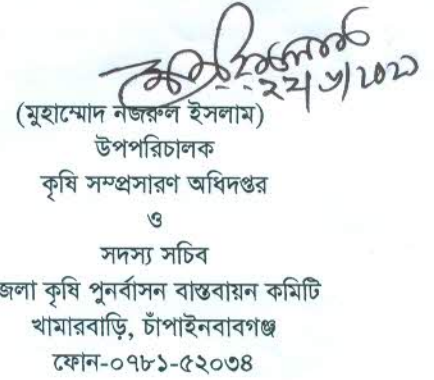 ২২/৬/২০২১
(মুহাম্মোদ নজরুল ইসলাম)
উপপরিচালক
কৃষি সম্প্রসারণ অধিদপ্তর
ও
সদস্য সচিব
জলা কৃষি পুনর্বাসন বাস্তবায়ন কমিটি
খামারবাড়ি, চাঁপাইনবাবগঞ্জ
ফোন-০৭৮১-৫২০৩৪